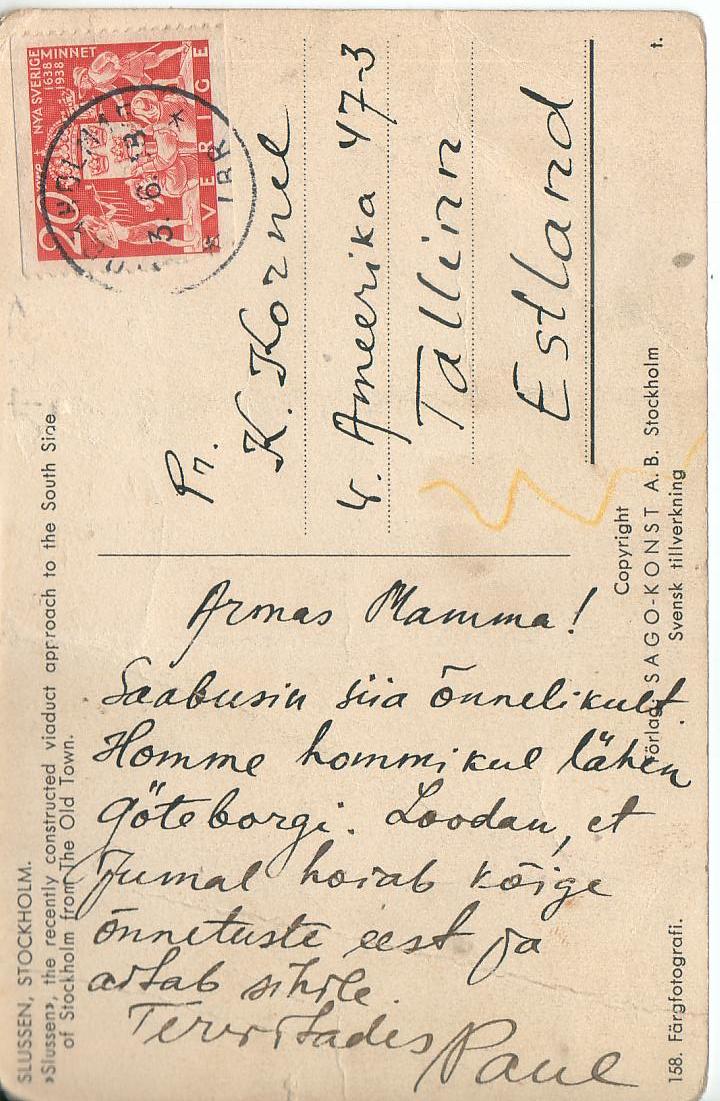 SLUSSEN, STOCKHOLM.
»Slussen», the recently constructed viaduct approach to the South Side
of Stockholm from The Old Town.
Armas Mamma!
Saabusin siia õnnelikult.
Homme hommikul lähen
Göteborgi. Loodan, et
Jumal hoiab kõige
õnnetuste eest ja
aitab sihile.
Tervitades
Paul
NYA SVERIGE MINNET
1638 1938
20
SVERIGE
3. 6.
Pr.
K. Kornel
v. Ameerika 47-3
Tallinn
Estland
t.
Copyright
Förlag: SAGO-KONST A.B. Stockholm
Svensk tillverkning
158. Färgfotografi.